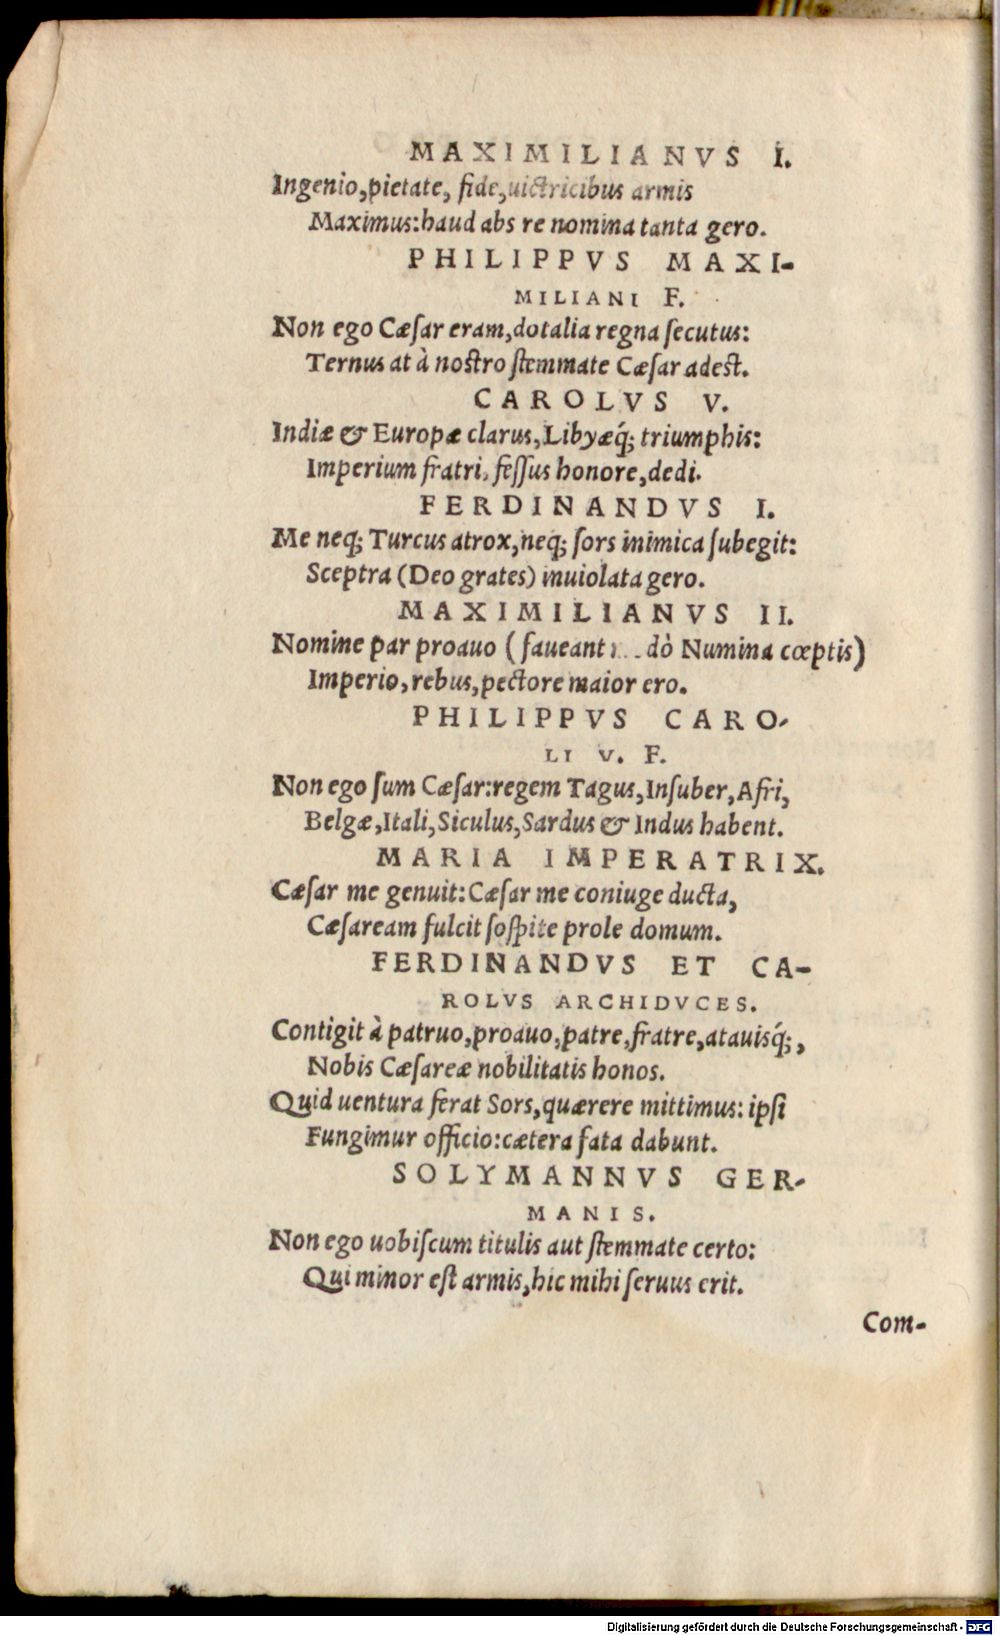 MAXIMILIANVS I.
Ingenio, pietate, fide, uictricibus armis
Maximus: haud abs re nomina tanta gero.
PHILIPPVS MAXI-
MILIANI F.
Non ego Cæſar eram, dotalia regna ſecutus:
Ternus at à noſtro ſtemmate Cæſar adeſt.
CAROLVS V.
Indiæ & Europæ clarus, Libyæq́; triumphis:
Imperium fratri, feſſus honore, dedi.
FERDINANDVS I.
Me neq; Turcus atrox, neq; ſors inimica ſubegit:
Sceptra (Deo grates) inuiolata gero.
MAXIMILIANVS II.
Nomine par proauo (faueant dò Numina cœptis)
Imperio, rebus, pectore maior ero.
PHILIPPVS CARO-
LI V. F.
Non ego ſum Cæſar: regem Tagus, Inſuber, Afri,
Belgæ, Itali, Siculus, Sardus & Indus habent.
MARIA IMPERATRIX.
Cæſar me genuit: Cæſar me coniuge ducta,
Cæſaream fulcit ſoſpite prole domum.
FERDINANDVS ET CA-
ROLVS ARCHIDVCES.
Contigit à patruo, proauo, patre, fratre, atauisq́;,
Nobis Cæſareæ nobilitatis honos.
Quid uentura ferat Sors, quærere mittimus: ipſi
Fungimur officio: cætera fata dabunt.
SOLYMANNVS GER-
MANIS.
Non ego uobiſcum titulis aut ſtemmate certo:
Qui minor eſt armis, hic mihi ſeruus erit.
Com-
Digitalisierung gefördert durch die Deutsche Forschungsgemeinschaft - DFG